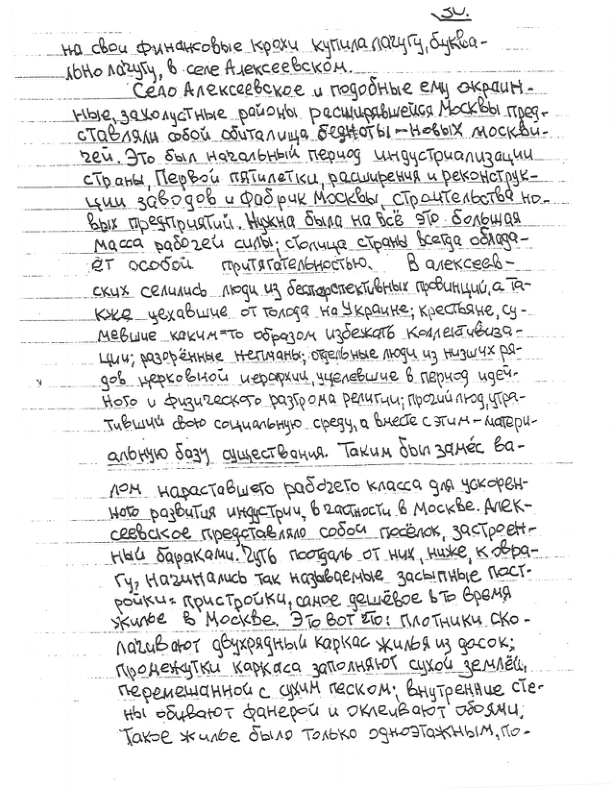 50.
на свои финансовые крохи купила лачугу, буква-
льно лачугу, в селе Алексеевском.
Село Алексеевское и подобные ему окраин-
ные, захолустные районы расширявшейся Москвы пред-
ставляли собой обиталища бедноты – новых москви-
чей. Это был начальный период индустриализации
страны, Первой пятилетки, расширения и реконструк-
ции заводов и фабрик Москвы, строительства но-
вых предприятий. Нужна была на всё это большая
масса рабочей силы; столица страны всегда облада-
ет особой притягательностью. В алексеев-
ских селились люди из бесперспективных провинций, а та-
кже уехавшие от голода на Украине; крестьяне, су-
мевшие каким-то образом избежать коллективиза-
ции; разорённые непманы; отдельные люди из низших ря-
дов церковной иерархии, уцелевшие в период идей-
ного и физического разгрома религии; прочий люд, утра-
тивший свою социальную среду, а вместе с этим – матери-
альную базу существования. Таким был замес ва-
лом нараставшего рабочего класса для ускорен-
ного развития индустрии, в частности в Москве. Алек-
сеевское представляло собой посёлок, застроен-
ный бараками. Чуть поодаль от них, ниже, к овра-
гу, начинались так называемые засыпные пост-
ройки-пристройки, самое дешёвое в то время
жилье в Москве. Это вот что: плотники ско-
лачивают двухрядный каркас жилья из досок;
промежутки каркаса заполняют сухой землёй,
перемешанной с сухим песком; внутренние сте-
ны обивают фанерой и оклеивают обоями.
Такое жилье было только одноэтажным, по-